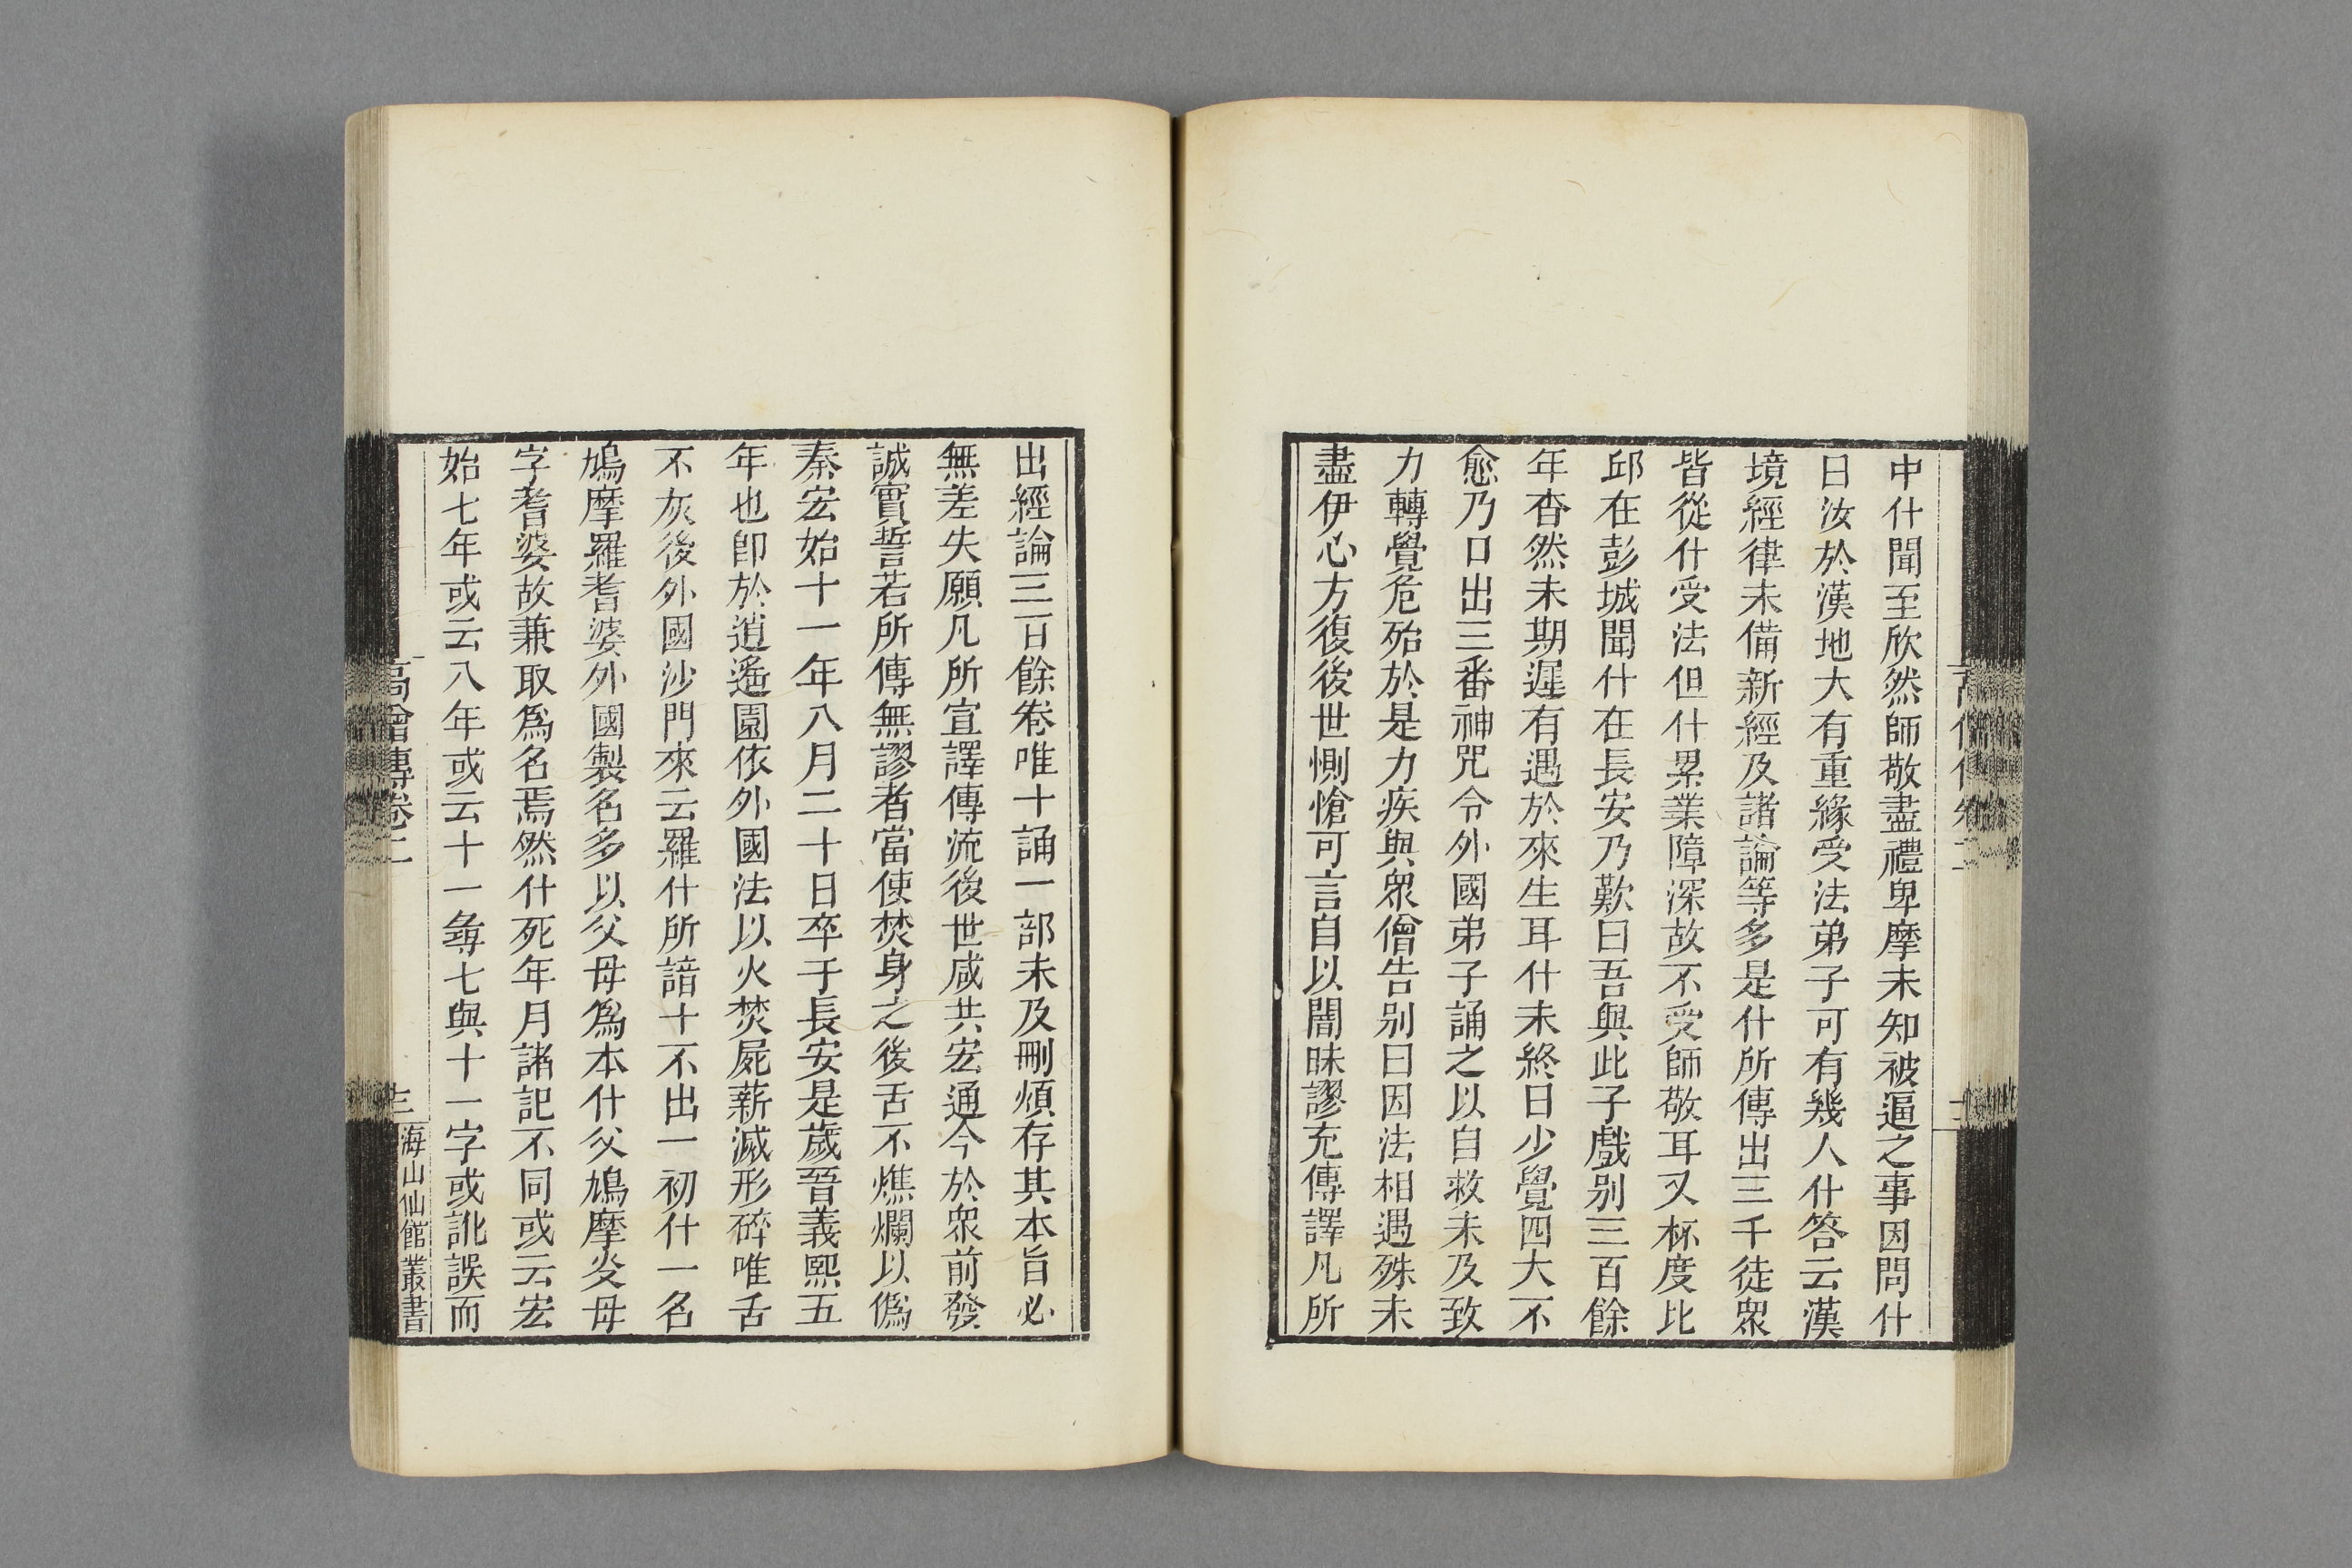 中什聞至欣然師敬盡禮卑摩未知被逼之事因問什
曰汝於漢地大有重緣受法弟子可有幾人什答云漢
境經律未備新經及諸論等多是什所傳出三千徒衆
皆從什受法但什累業障深故不受師敬耳又杯度比
邱在彭城聞什在長安乃歎曰吾與此子戲别三百餘
年杳然未期遲有遇於來生耳什未終日少覺四大不
愈乃口出三番神咒令外國弟子誦之以自救未及致
力轉覺危殆於是力疾與衆僧告别曰因法相遇殊未
盡伊心方復後世惻愴可言自以闇昧謬充傳譯凡所
出經論三百餘卷唯十誦一部未及刪煩存其本旨必
無差失願凡所宣譯傳流後世咸共宏通今於衆前發
誠實誓若所傳無謬者當使焚身之後舌不燋爛以僞
秦宏始十一年八月二十日卒于長安是歲晉義熙五
年也卽於逍遙園依外國法以火焚屍薪滅形碎唯舌
不灰後外國沙門來云羅什所諳十不出一初什一名
鳩摩羅耆婆外國製名多以父母爲本什父鳩摩炎母
字耆婆故兼取爲名焉然什死年月諸記不同或云宏
始七年或云八年或云十一尋七與十一字或訛誤而
高僧傳卷二
海山仙館叢書